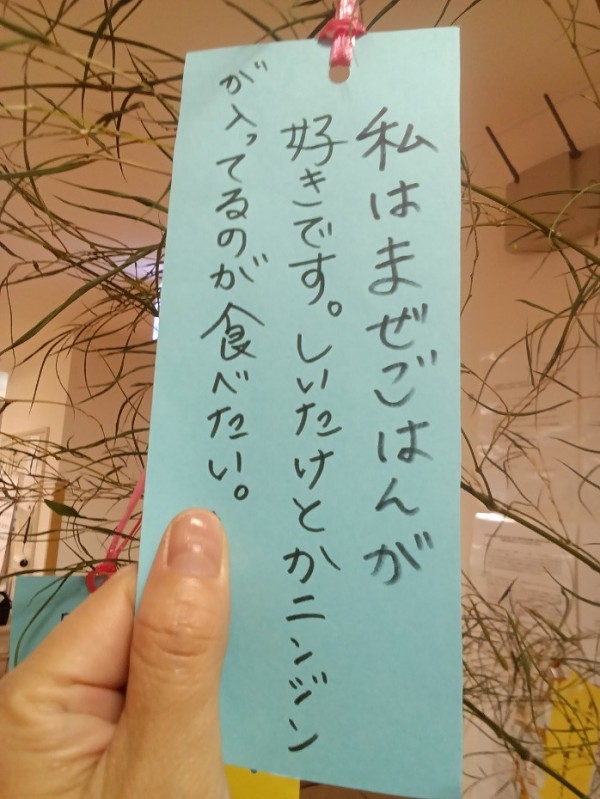 私はまぜごはんが
好きです。しいたけとかニンジン
が入ってるのが食べたい。